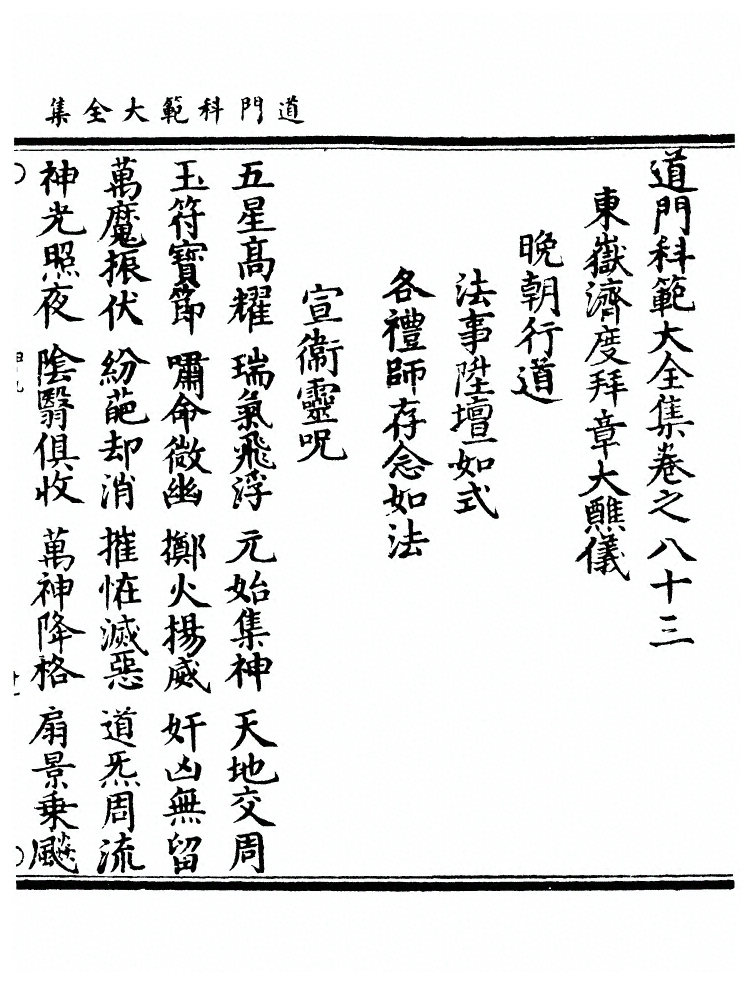 道門科範大全集
道門科範大全集卷之八十三
東嶽濟度拜章大醮儀
晚朝行道
法事陞壇如式
各禮師存念如法
宣衞靈呪
五星高耀 瑞氣飛浮 元始集神 天地交周
玉符寶節 嘯命微幽 擲火揚威 奸凶無留
萬魔振伏 紛葩却消 摧恠滅惡 道炁周流
神光照夜 陰翳俱收 萬神降格 扇景乗飈